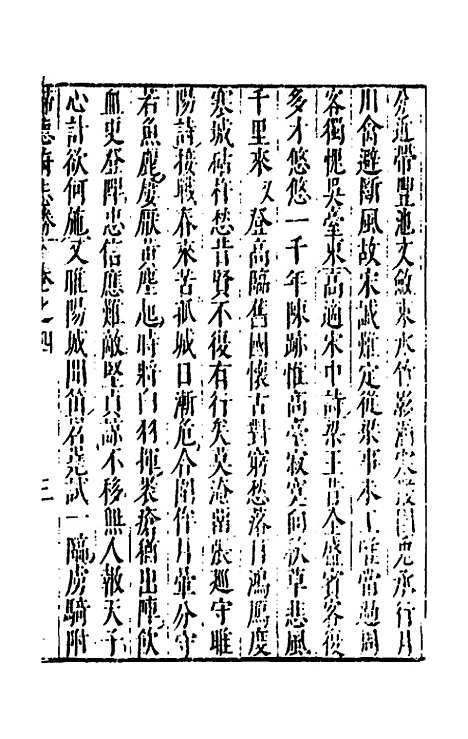 分近帶豐池文斂東水竹影滿承行月
川禽避斷風故宋誠難定從梁事未工豈當過周
客獨愧吳臺東高適宋中詩梁王昔全盛賓客復
多才悠悠一千年陳跡惟高臺寂寞向秋草悲風
千里來又登高臨舊國懷古對窮愁落日鴻鴈度
寒城砧杵愁昔賢不復有行矣莫淹留張巡守睢
陽詩接戰春來苦孤城日漸危合圍侔月暈分守
若魚麗屢厭黃塵起時將白羽揮裹瘡猶出陣飲
血更登陴忠信應難敵堅貞諒不移無人報天子
心計欲何施又睢陽城聞笛岧嶤試一臨虜騎附
歸德府志卷之四 三